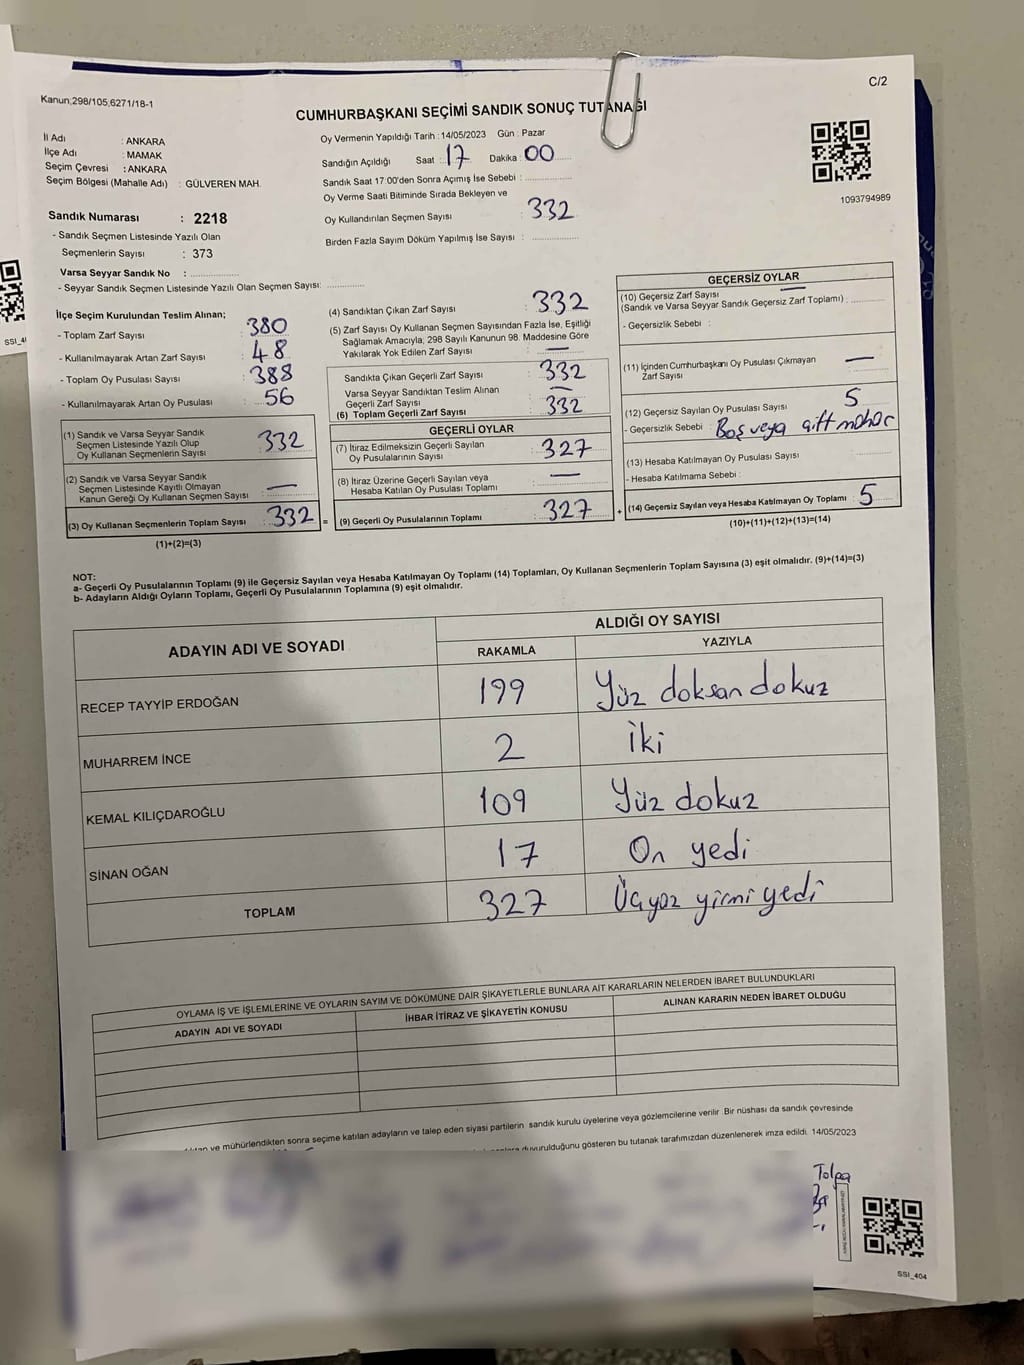 C/2
Kanun;298/105;6271/18-1
CUMHURBAŞKANI SEÇİMİ SANDIK SONUÇ TUTANAĞI
İl Adı : ANKARA
İlçe Adı : MAMAK
Seçim Çevresi : ANKARA
Seçim Bölgesi (Mahalle Adı) : GÜLVEREN MAH.
Oy Vermenin Yapıldığı Tarih :14/05/2023 Gün : Pazar
Sandığın Açıldığı Saat : 17 Dakika : 00
Sandık Saat 17:00'den Sonra Açımış İse Sebebi :
Oy Verme Saati Bitiminde Sırada Bekleyen ve
Oy Kullandırılan Seçmen Sayısı : 332
Birden Fazla Sayım Döküm Yapılmış İse Sayısı :
1093794989
Sandık Numarası : 2218
- Sandık Seçmen Listesinde Yazılı Olan
Seçmenlerin Sayısı : 373
Varsa Seyyar Sandık No :
- Seyyar Sandık Seçmen Listesinde Yazılı Olan Seçmen Sayısı:
İlçe Seçim Kurulundan Teslim Alınan;
- Toplam Zarf Sayısı : 380
- Kullanılmayarak Artan Zarf Sayısı : 48
- Toplam Oy Pusulası Sayısı : 388
- Kullanılmayarak Artan Oy Pusulası : 56
(1) Sandık ve Varsa Seyyar Sandık
Seçmen Listesinde Yazılı Olup
Oy Kullanan Seçmenlerin Sayısı : 332
(2) Sandık ve Varsa Seyyar Sandık
Seçmen Listesinde Kayıtlı Olmayan
Kanun Gereği Oy Kullanan Seçmen Sayısı : —
(3) Oy Kullanan Seçmenlerin Toplam Sayısı : 332
(1)+(2)=(3)
(4) Sandıktan Çıkan Zarf Sayısı : 332
(5) Zarf Sayısı Oy Kullanan Seçmen Sayısından Fazla İse, Eşitliği
Sağlamak Amacıyla; 298 Sayılı Kanunun 98. Maddesine Göre
Yakılarak Yok Edilen Zarf Sayısı : —
Sandıkta Çıkan Geçerli Zarf Sayısı : 332
Varsa Seyyar Sandıktan Teslim Alınan
Geçerli Zarf Sayısı : —
(6) Toplam Geçerli Zarf Sayısı : 332
GEÇERLİ OYLAR
(7) İtiraz Edilmeksizin Geçerli Sayılan
Oy Pusulalarının Sayısı : 327
(8) İtiraz Üzerine Geçerli Sayılan veya
Hesaba Katılan Oy Pusulası Toplamı : —
= (9) Geçerli Oy Pusulalarının Toplamı : 327
GEÇERSİZ OYLAR
(10) Geçersiz Zarf Sayısı —
(Sandık ve Varsa Seyyar Sandık Geçersiz Zarf Toplamı) :
- Geçersizlik Sebebi :
(11) İçinden Cumhurbaşkanı Oy Pusulası Çıkmayan
Zarf Sayısı : —
(12) Geçersiz Sayılan Oy Pusulası Sayısı : 5
- Geçersizlik Sebebi : Boş veya çift mühür
(13) Hesaba Katılmayan Oy Pusulası Sayısı :
- Hesaba Katılmama Sebebi :
+ (14) Geçersiz Sayılan veya Hesaba Katılmayan Oy Toplamı : 5
(10)+(11)+(12)+(13)=(14)
NOT:
a- Geçerli Oy Pusulalarının Toplamı (9) ile Geçersiz Sayılan veya Hesaba Katılmayan Oy Toplamı (14) Toplamları, Oy Kullanan Seçmenlerin Toplam Sayısına (3) eşit olmalıdır. (9)+(14)=(3)
b- Adayların Aldığı Oyların Toplamı, Geçerli Oy Pusulalarının Toplamına (9) eşit olmalıdır.
ADAYIN ADI VE SOYADI
ALDIĞI OY SAYISI
RAKAMLA YAZIYLA
RECEP TAYYİP ERDOĞAN 199 Yüz doksan dokuz
MUHARREM İNCE 2 İki
KEMAL KILIÇDAROĞLU 109 Yüz dokuz
SİNAN OĞAN 17 On yedi
TOPLAM 327 Üçyüz yirmi yedi
OYLAMA İŞ VE İŞLEMLERİNE VE OYLARIN SAYIM VE DÖKÜMÜNE DAİR ŞİKAYETLERLE BUNLARA AİT KARARLARIN NELERDEN İBARET BULUNDUKLARI
ADAYIN ADI VE SOYADI İHBAR İTİRAZ VE ŞİKAYETİN KONUSU ALINAN KARARIN NEDEN İBARET OLDUĞU
ve mühürlendikten sonra seçime katılan adayların ve talep eden siyasi partilerin sandık kurulu üyelerine veya gözlemcilerine verilir .Bir nüshası da sandık çevresinde
duyurulduğunu gösteren bu tutanak tarafımızdan düzenlenerek imza edildi. 14/05/2023
SSI_404